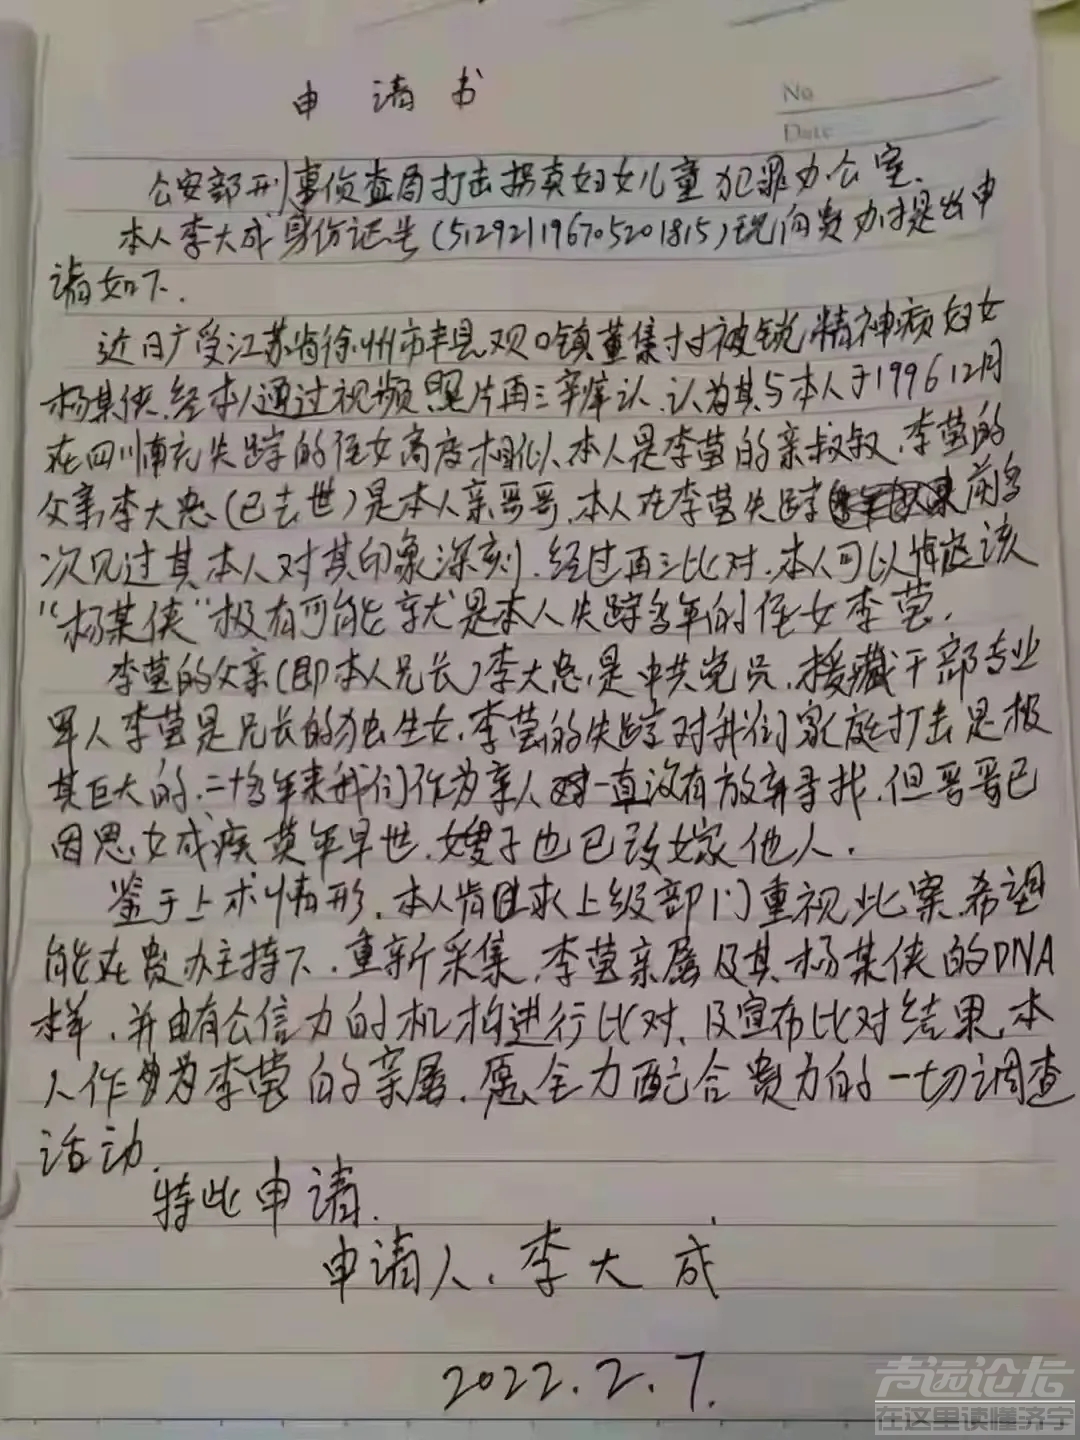 申请书
No
Date
公安部刑事侦查局打击拐卖妇女儿童犯罪办公室.
本人李大成身份证号(512921196705201815)现向贵办提出申
请如下.
近日广受江苏省徐州市丰县欢口镇董集村被锁精神病妇女
杨某侠.经本人通过视频照片再三辨认.认为其与本人于1996 12月
在四川南充失踪的侄女高度相似.本人是李莹的亲叔叔.李莹的
父亲李大忠(已去世)是本人亲哥哥.本人在李莹失踪前多
次见过其本人对其印象深刻.经过再三比对.本人可以肯定该
“杨某侠”极有可能就是本人失踪多年的侄女李莹.
李莹的父亲(即本人兄长)李大忠是中共党员.援藏干部专业
军人李莹是兄长的独生女.李莹的失踪对我们家庭打击是极
其巨大的.二十多年来我们作为亲人一直没有放弃寻找.但哥哥已
因思女成疾英年早世.嫂子也已改嫁他人.
鉴于上术情形.本人肯且求上级部门重视此案.希望
能在贵办主持下.重新采集.李莹亲属及其杨某侠的DNA
样.并由有公信力的机构进行比对.及宣布比对结果.本
人作为李莹的亲属.愿全力配合贵力的一切调查
活动.
特此申请.
申请人.李大成
2022.2.7.
声远论坛
在这里读懂济宁